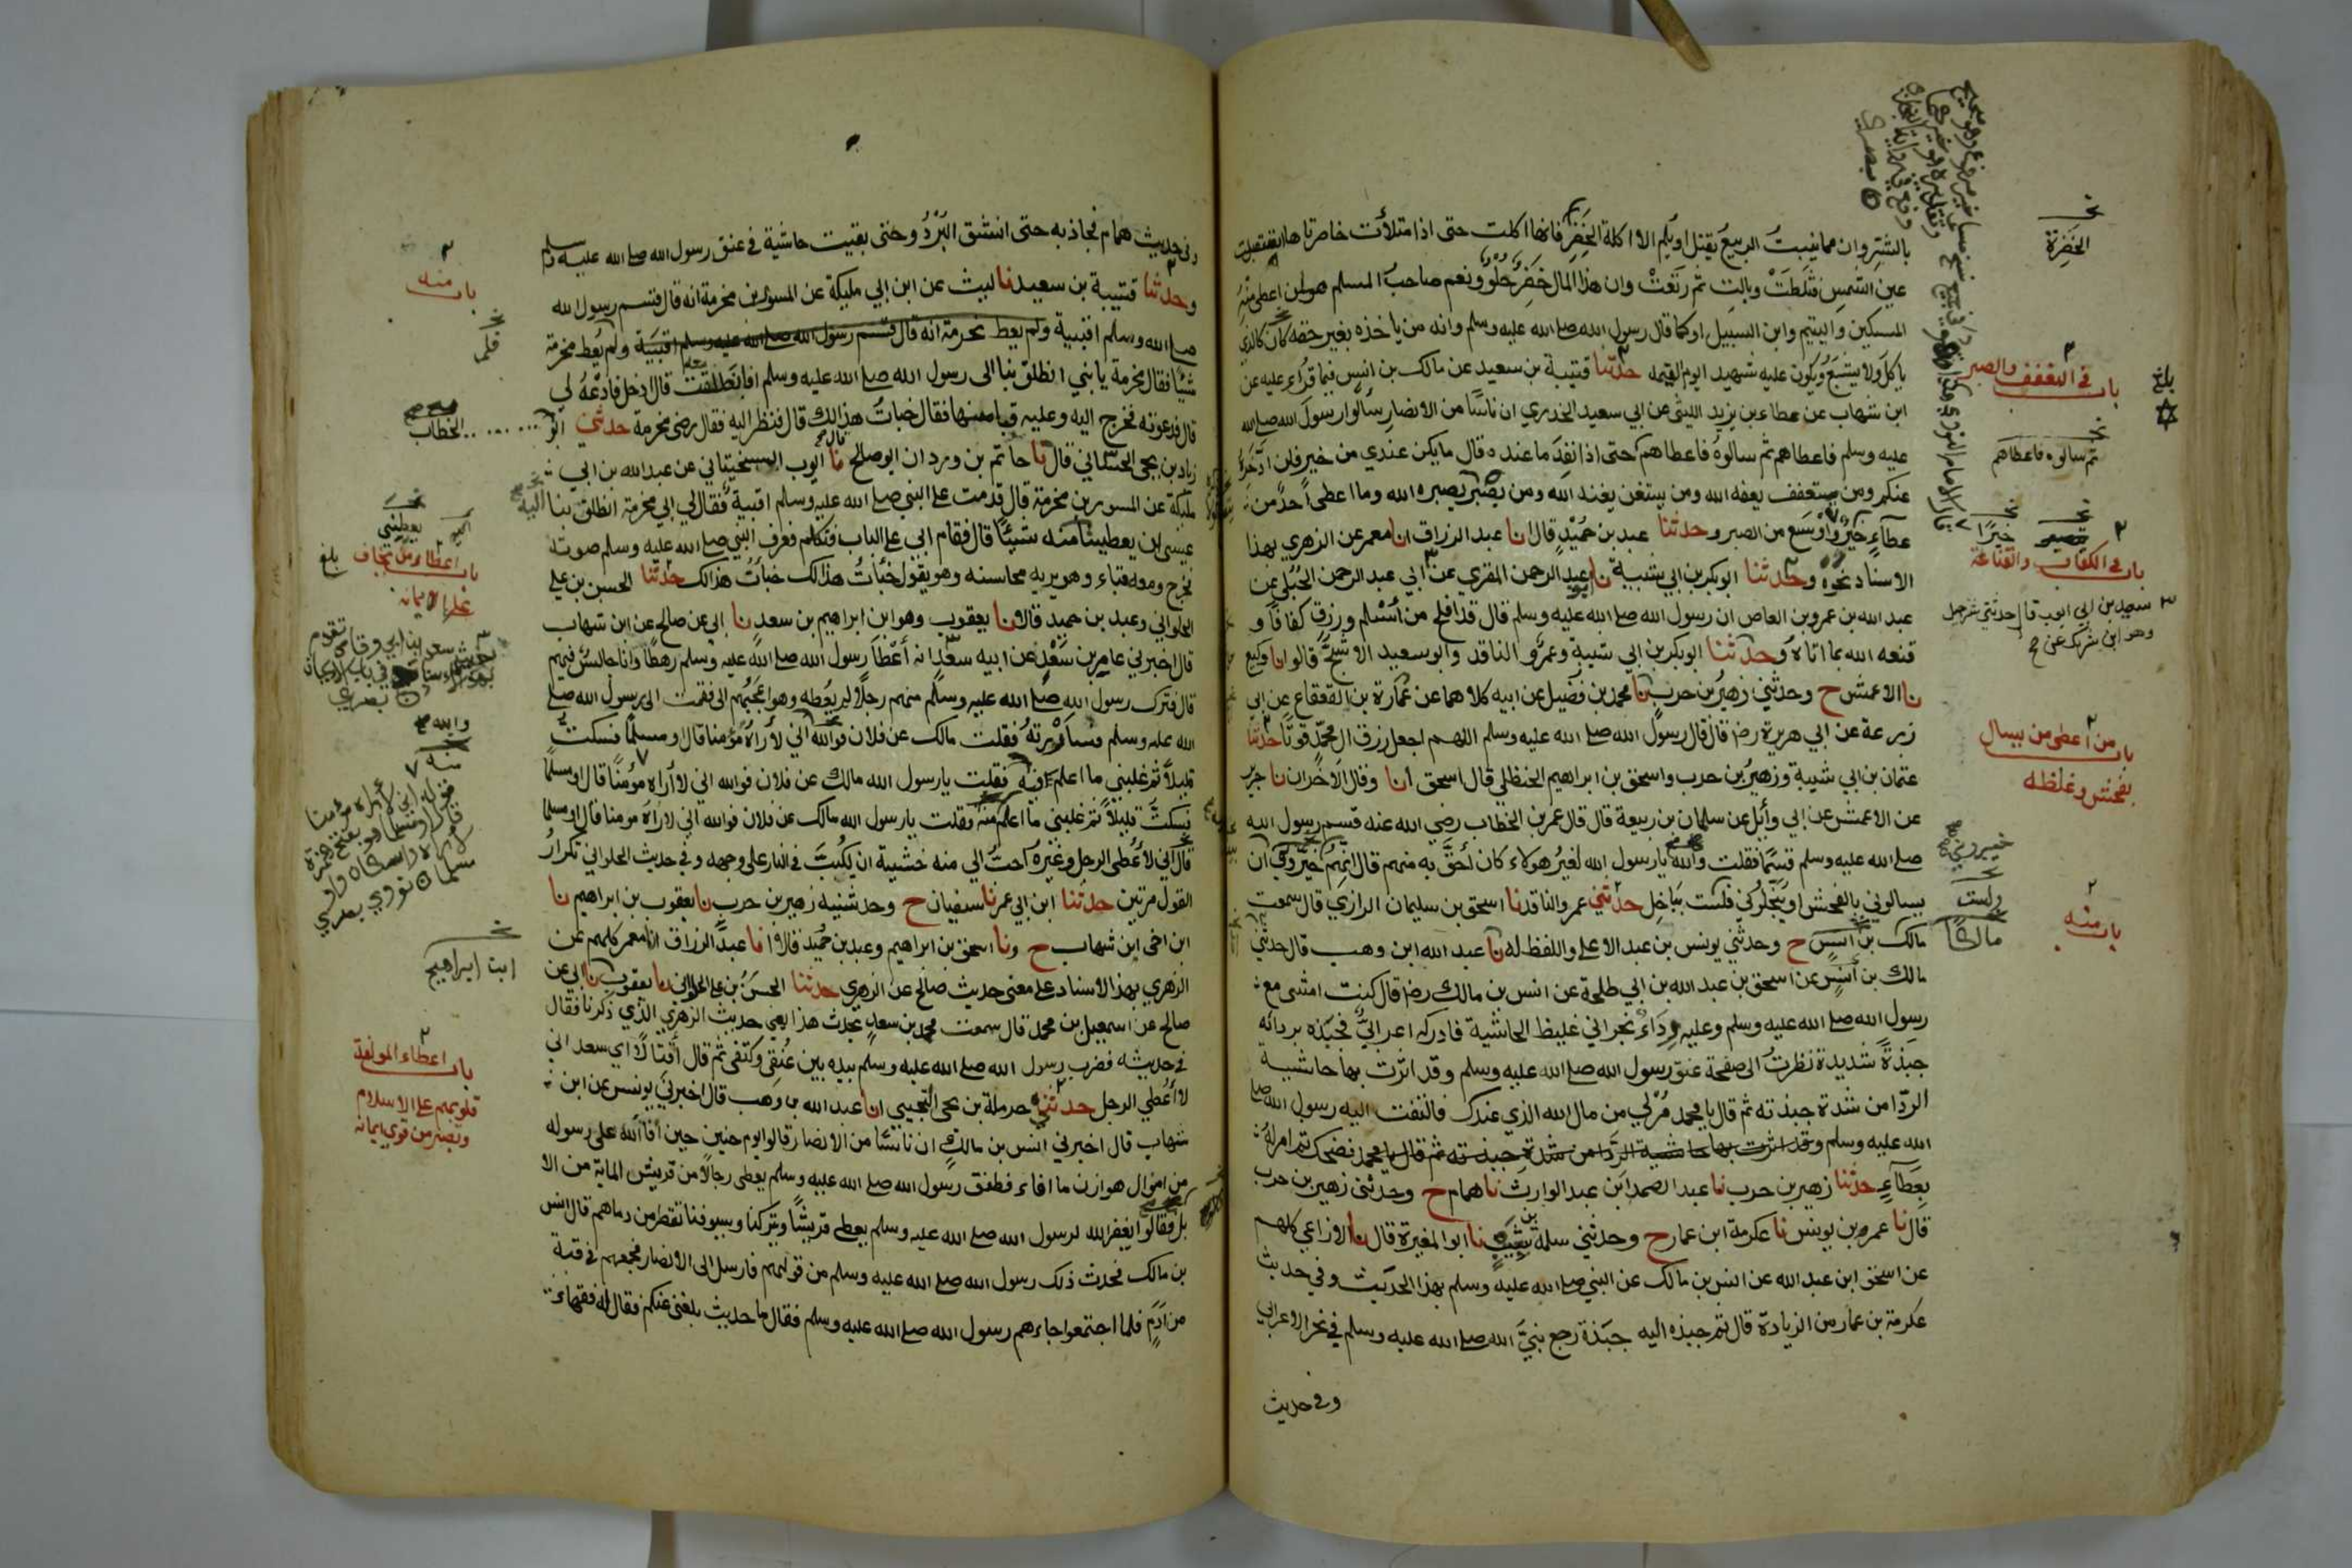 بالشر وان مما ينبت الربيع يقتل او يلم الا اكلة الخضر فانها اكلت حتى اذا امتلأت خاصرتاها استقبلت
عين الشمس فثلطت وبالت ثم رتعت وان هذا المال خضر حلو ونعم صاحب المسلم هو لمن اعطى منه
المسكين واليتيم وابن السبيل او كما قال رسول الله صلى الله عليه وسلم وانه من ياخذه بغير حقه كان كالذي
ياكل ولا يشبع ويكون عليه شهيد ايوم القيمه حدثنا قتيبة بن سعيد عن مالك بن انس فيما قرأ عليه عن
ابن شهاب عن عطاء بن يزيد الليثي عن ابي سعيد الخدري ان ناسا من الانصار سألوا رسول الله صلى الله
عليه وسلم فاعطاهم ثم سالوه فاعطاهم حتى اذا نفد ما عنده قال ما يكن عندي من خير فلن ادخره
عنكم ومن يستعفف يعفه الله ومن يستغن يغنه الله ومن يصبر يصبره الله وما اعطى احد من
عطاء خير واوسع من الصبر وحدثنا عبد بن حميد قال انا عبد الرزاق انا معمر عن الزهري بهذا
الاسناد نحوه وحدثنا ابو بكر بن ابي شيبة نا ابو عبد الرحمن المقري عن ابي عبد الرحمن الحبلي عن
عبد الله بن عمرو بن العاص ان رسول الله صلى الله عليه وسلم قال قد افلح من اسلم ورزق كفافا و
قنعه الله بما اتاه وحدثنا ابو بكر بن ابي شيبة وعمرو الناقد وابو سعيد الاشج قالوا نا وكيع
نا الاعمش ح وحدثني زهير بن حرب نا محمد بن فضيل عن ابيه كلاهما عن عمارة بن القعقاع عن ابي
زرعة عن ابي هريرة رضه قال قال رسول الله صلى الله عليه وسلم اللهم اجعل رزق ال محمد قوتا حدثنا
عثمان بن ابي شيبة وزهير بن حرب واسحق بن ابراهيم الحنظلي قال اسحق أنا وقال الاخران نا جرير
عن الاعمش عن ابي وائل عن سلمان بن ربيعة قال قال عمر بن الخطاب رضي الله عنه قسم رسول الله
صلى الله عليه وسلم قسما فقلت والله يا رسول الله لغير هولاء كان أحق به منهم قال انهم خيروني ان
يسالوني بالفحش او يبخلوني فلست بباخل حدثني عمرو الناقد نا اسحق بن سليمان الرازي قال سمعت
مالك بن انس ح وحدثني يونس بن عبد الاعلى واللفظ له نا عبد الله ابن وهب قال حدثني
مالك بن أنس عن اسحق بن عبد الله بن ابي طلحة عن انس بن مالك رضه قال كنت امشي مع
رسول الله صلى الله عليه وسلم وعليه رداء نجراني غليظ الحاشية فادركه اعرابي فجبذه بردائه
جبذة شديدة نظرت الى صفحة عنق رسول الله صلى الله عليه وسلم وقد اثرت بها حاشية
الردا من شدة جبذته ثم قال يا محمد مر لي من مال الله الذي عندك فالتفت اليه رسول الله صلى
الله عليه وسلم وقد اثرت بها حاشية الردا من شدة جبذته ثم قال يا محمد فضحك ثم امر له
بعطاء حدثنا زهير بن حرب نا عبد الصمد ابن عبد الوارث نا همام ح وحدثني زهير بن حرب
قال نا عمر بن يونس نا عكرمة ابن عمار ح وحدثني سلمة بن شبيب نا ابو المغيرة قال نا الاوزاعي كلهم
عن اسحق ابن عبد الله عن انس بن مالك عن النبي صلى الله عليه وسلم بهذا الحديث وفي حديث
عكرمة بن عمار من الزيادة قال ثم جبذه اليه جبذة رجع نبي الله صلى الله عليه وسلم في نحر الاعرابي
وفي حديث
الخضرة
باب في التعفف والصبر
بلغ
ثم سالوه فاعطاهم
خيرا
باب في الكفاف والقناعة
سعيد بن ابي ايوب قال حدثني شرحبيل
وهو ابن شريك عن
باب من اعطى من يسال
بفحش وغلظه
ولست
مالكا
باب منه
وفي حديث همام فجاذبه حتى انشق البرد وحتى بقيت حاشية في عنق رسول الله صلى الله عليه وسلم
وحدثنا قتيبة بن سعيد نا ليث عن ابن ابي مليكة عن المسور بن مخرمة انه قال قسم رسول الله
صلى الله وسلم اقبية ولم يعط مخرمة انه قال قسم رسول الله صلى الله عليه وسلم اقبية ولم يعط مخرمة
شيئا فقال مخرمة يا بني انطلق بنا الى رسول الله صلى الله عليه وسلم فانطلقت معه قال ادخل فادعه لي
قال فدعوته فخرج اليه وعليه قبا منها فقال خبات هذا لك قال فنظر اليه فقال رضي مخرمة حدثني ابو الخطاب
زياد بن يحيى الحساني قال نا حاتم بن وردان ابو صالح نا ايوب السختياني عن عبد الله بن ابي
مليكة عن المسور بن مخرمة قال قدمت على النبي صلى الله عليه وسلم اقبية فقال لي ابي مخرمة انطلق بنا اليه
عسى ان يعطينا منه شيئا قال فقام ابي على الباب فتكلم فعرف النبي صلى الله عليه وسلم صوته
فخرج ومعه قباء وهو يريه محاسنه وهو يقول خبأت هذا لك خبأت هذا لك حدثنا الحسن بن علي
الحلواني وعبد بن حميد قالا نا يعقوب وهو ابن ابراهيم بن سعد نا ابي عن صالح عن ابن شهاب
قال اخبرني عامر بن سعد عن ابيه سعد انه أعطا رسول الله صلى الله عليه وسلم رهطا وانا جالس فيهم
قال فترك رسول الله صلى الله عليه وسلم منهم رجلا لم يعطه وهو اعجبهم الي فقمت الى رسول الله صلى
الله عليه وسلم فساررته فقلت مالك عن فلان فوالله اني لأراه مؤمنا قال او مسلما فسكت
قليلا ثم غلبني ما اعلم فيه فقلت يا رسول الله مالك عن فلان فوالله اني لأراه مؤمنا قال او مسلما
فسكت قليلا ثم غلبني ما اعلم منه فقلت يا رسول الله مالك عن فلان فوالله اني لأراه مومنا قال او مسلما
قال اني لأعطي الرجل وغيره احب الي منه خشية ان يكب في النار على وجهه وفي حديث الحلواني تكرار
القول مرتين حدثنا ابن ابي عمر نا سفيان ح وحدثنيه زهير بن حرب نا يعقوب بن ابراهيم نا
ابن اخي ابن شهاب ح ونا اسحق بن ابراهيم وعبد بن حميد قالا انا عبد الرزاق انا معمر كلهم عن
الزهري بهذا الاسناد على معنى حديث صالح عن الزهري حدثنا الحسن بن علي الحلواني نا يعقوب نا ابي عن
صالح عن اسمعيل بن محمد قال سمعت محمد بن سعد يحدث هذا يعني حديث الزهري الذي ذكرنا فقال
في حديثه فضرب رسول الله صلى الله عليه وسلم بيده بين عنقي وكتفي ثم قال أقتالا اي سعد اني
لا أعطي الرجل حدثني حرملة بن يحيى التجيبي انا عبد الله بن وهب قال اخبرني يونس عن ابن
شهاب قال اخبرني انس بن مالك ان ناسا من الانصار قالوا يوم حنين حين أفا الله على رسوله
من اموال هوازن ما افاء فطفق رسول الله صلى الله عليه وسلم يعطي رجالا من قريش الماية من الا
بل فقالوا يغفر الله لرسول الله صلى الله عليه وسلم يعطي قريشا ويتركنا وسيوفنا تقطر من دماهم قال انس
بن مالك فحدث ذلك رسول الله صلى الله عليه وسلم من قولهم فارسل الى الانصار فجمعهم في قبة
من ادم فلما اجتمعوا جاءهم رسول الله صلى الله عليه وسلم فقال ما حديث بلغني عنكم فقال له فقهاء
باب منه
يعطيني
باب اعطاء من يخاف
على ايمانه
بلغ
والله
منه
ابن ابراهيم
باب اعطاء المولفة
قلوبهم على الاسلام
وتصبر من قوي ايمانه